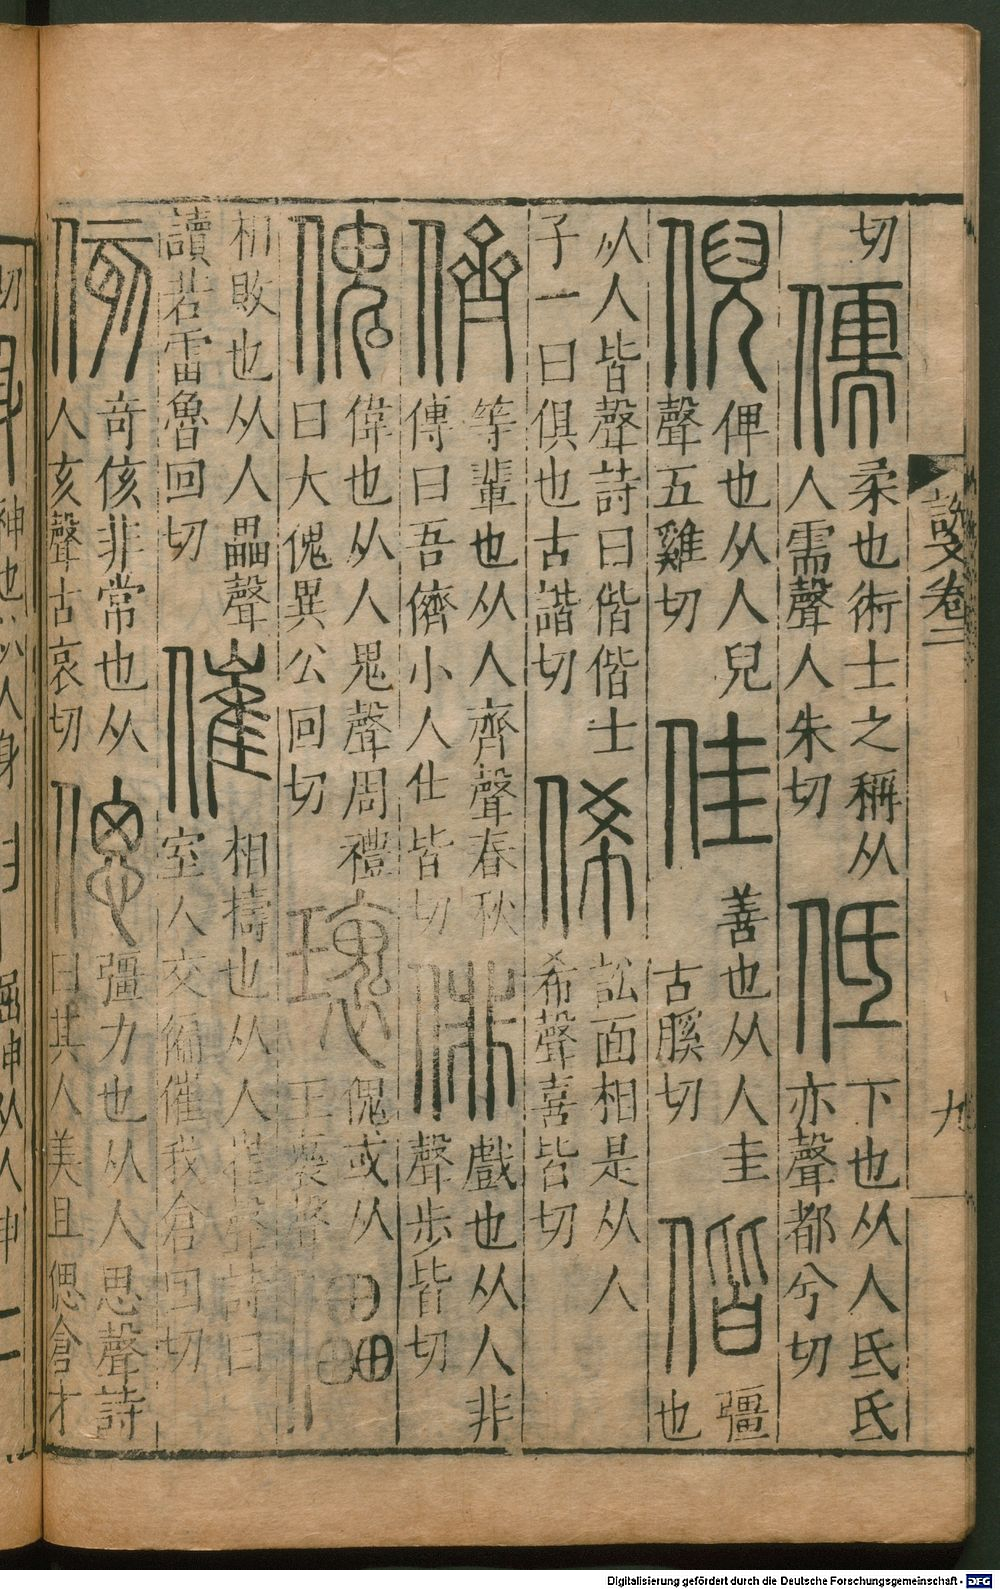 說文卷二
九
切
儒
柔也術士之稱从
人需聲人朱切
低
下也从人氐氐
亦聲都兮切
倪
俾也从人兒
聲五雞切
佳
善也从人圭
古膎切
偕
彊
也
从人皆聲詩曰偕偕士
子一曰俱也古諧切
俙
訟面相是从人
希聲喜皆切
儕
等輩也从人齊聲春秋
傳曰吾儕小人仕皆切
俳
戲也从人非
聲步皆切
傀
偉也从人鬼聲周禮
曰大傀異公回切
瓌
傀或从
玉褱聲
儡
相敗也从人畾聲
讀若雷魯回切
催
相擣也从人崔聲詩曰
室人交徧催我倉回切
侅
奇侅非常也从
人亥聲古哀切
偲
彊力也从人思聲詩
曰其人美且偲倉才
Digitalisierung gefördert durch die Deutsche Forschungsgemeinschaft - DFG